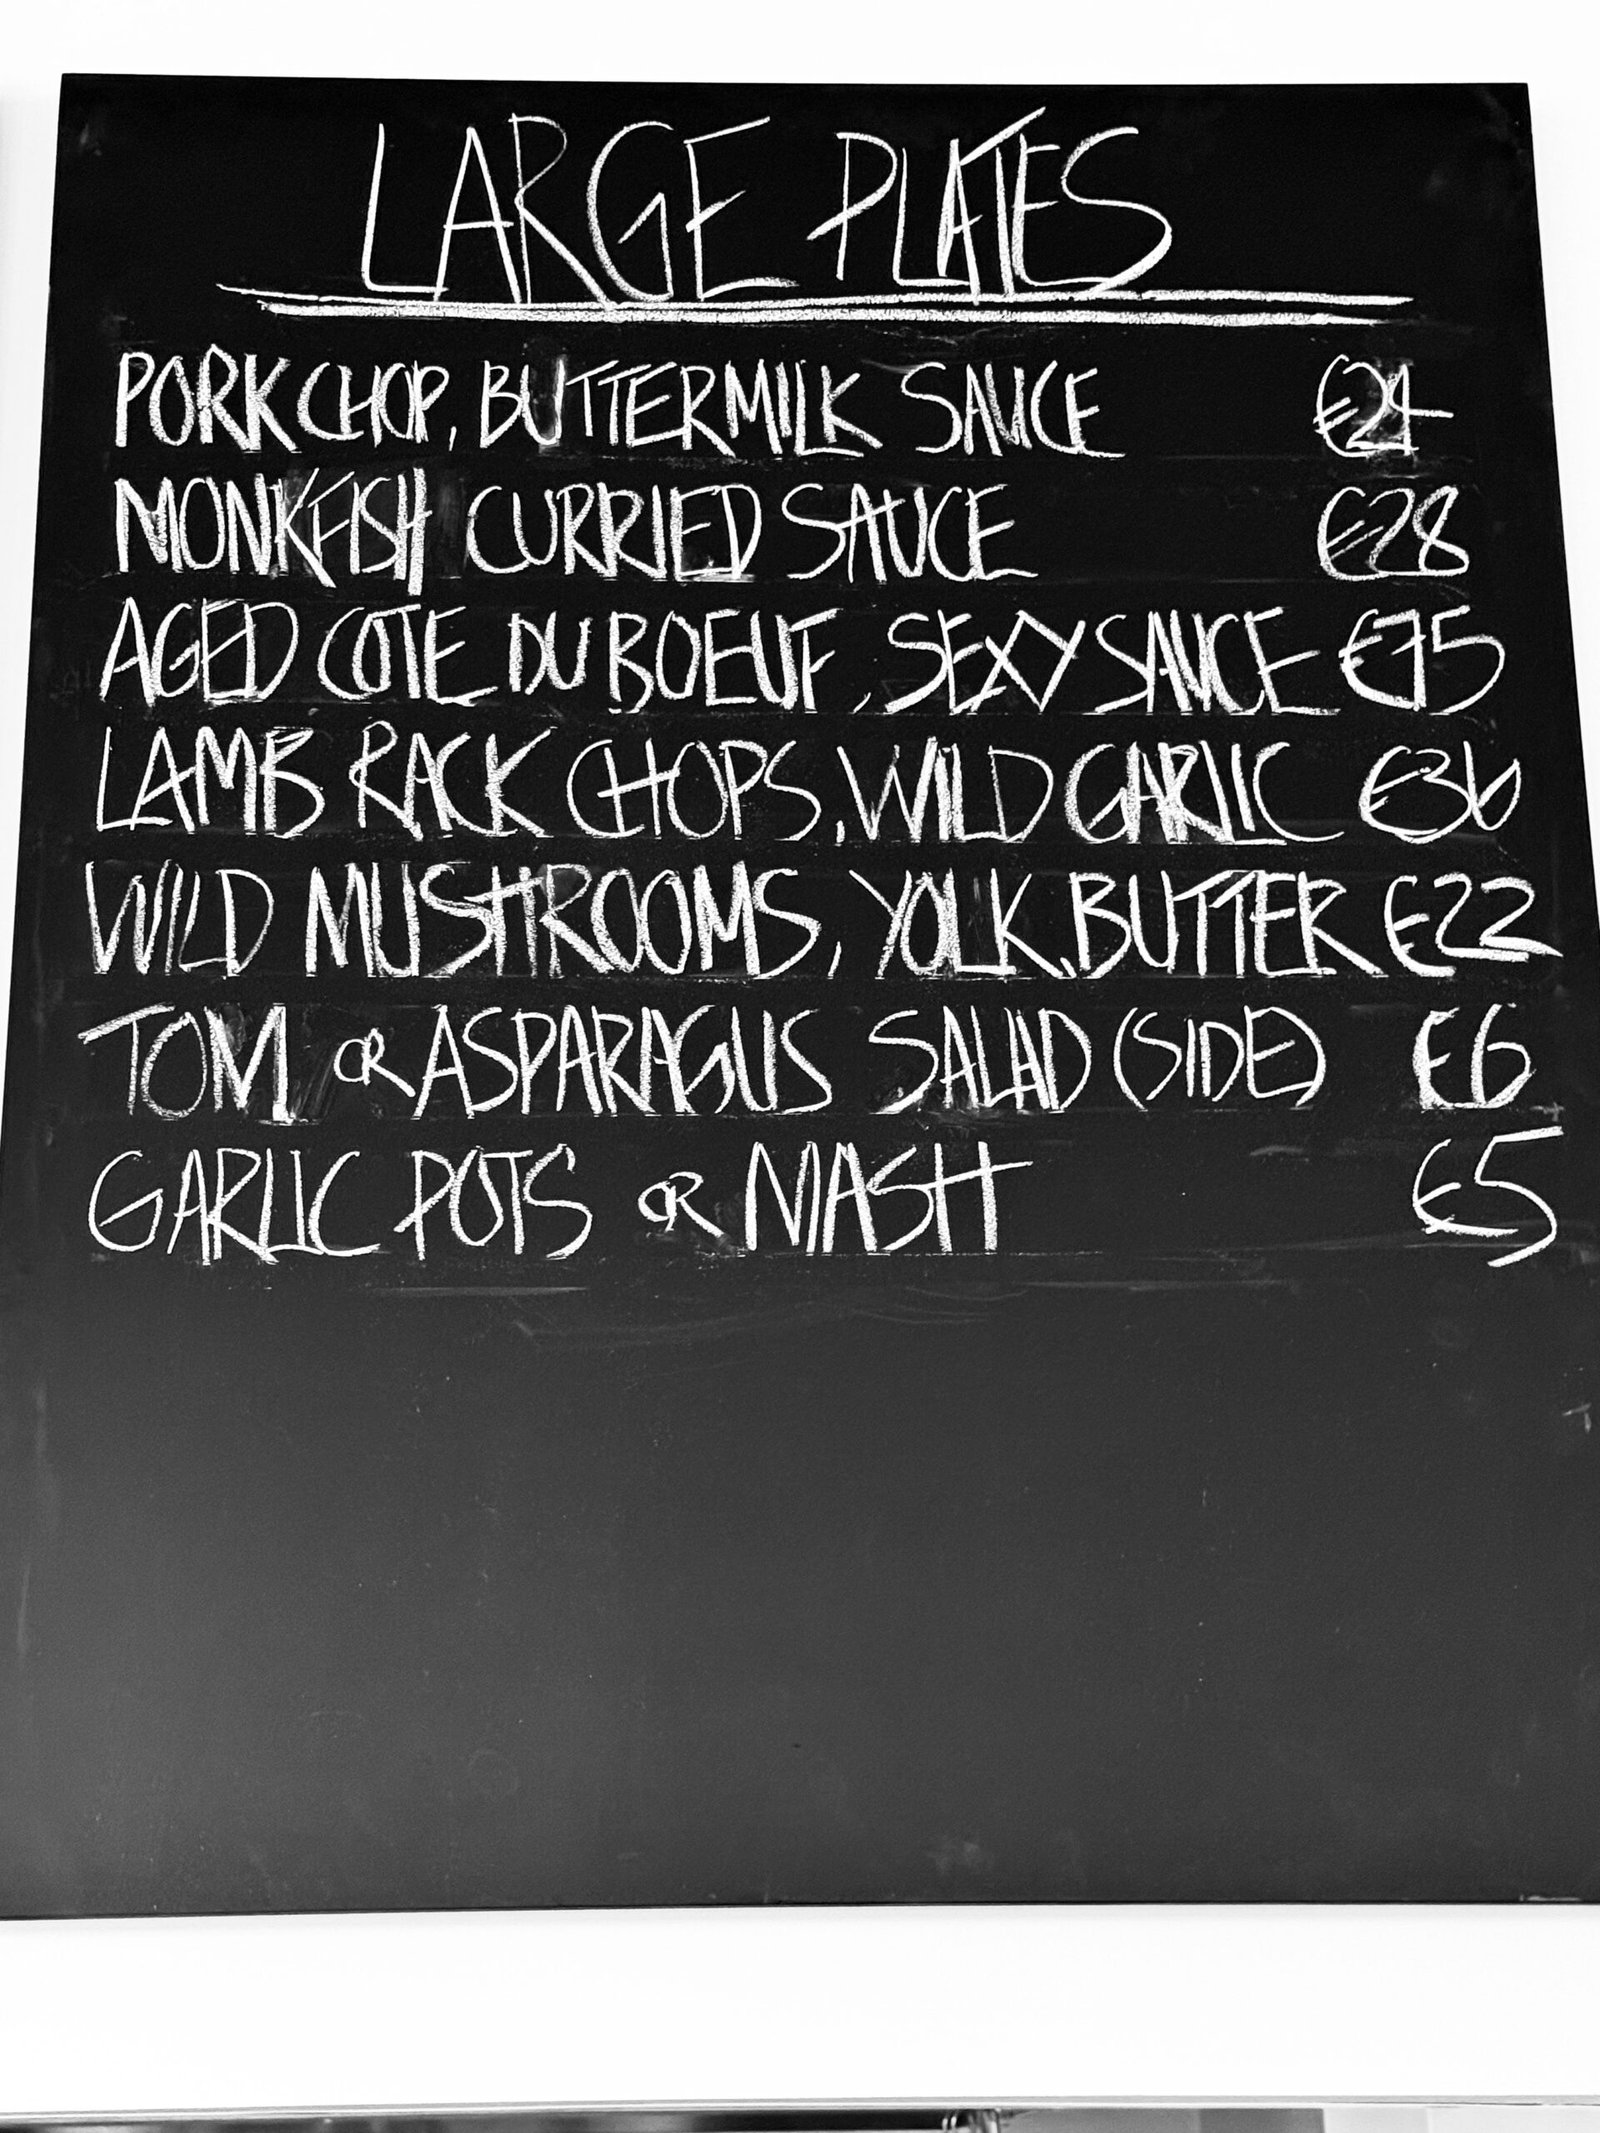 LARGE PLATES
PORK CHOP, BUTTERMILK SAUCE €24
MONKFISH CURRIED SAUCE €28
AGED COTE DU BOEUF, SEXY SAUCE €75
LAMB RACK CHOPS, WILD GARLIC €36
WILD MUSHROOMS, YOLK, BUTTER €22
TOM OR ASPARAGUS SALAD (SIDE) €6
GARLIC POTS OR MASH €5